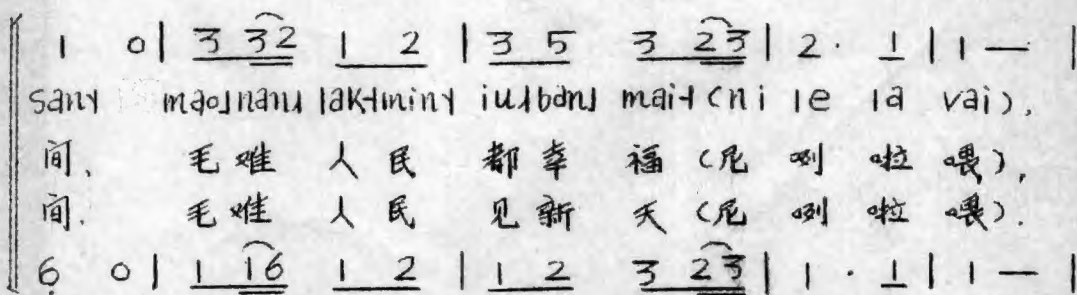 1 0 | 3 32 1 2 | 3 5 3 23 | 2 · 1 | 1 — |
sany maoɹnanɹ lakɬminy iuɹbanɹ maiɬ (ni le la vai),
间、 毛难 人民 都幸 福 (尼 咧 啦 喂),
间. 毛难 人民 见新 天 (尼 咧 啦 喂).
6̣ 0 | 1 16 1 2 | 1 2 3 23 | 1 · 1 | 1 — |